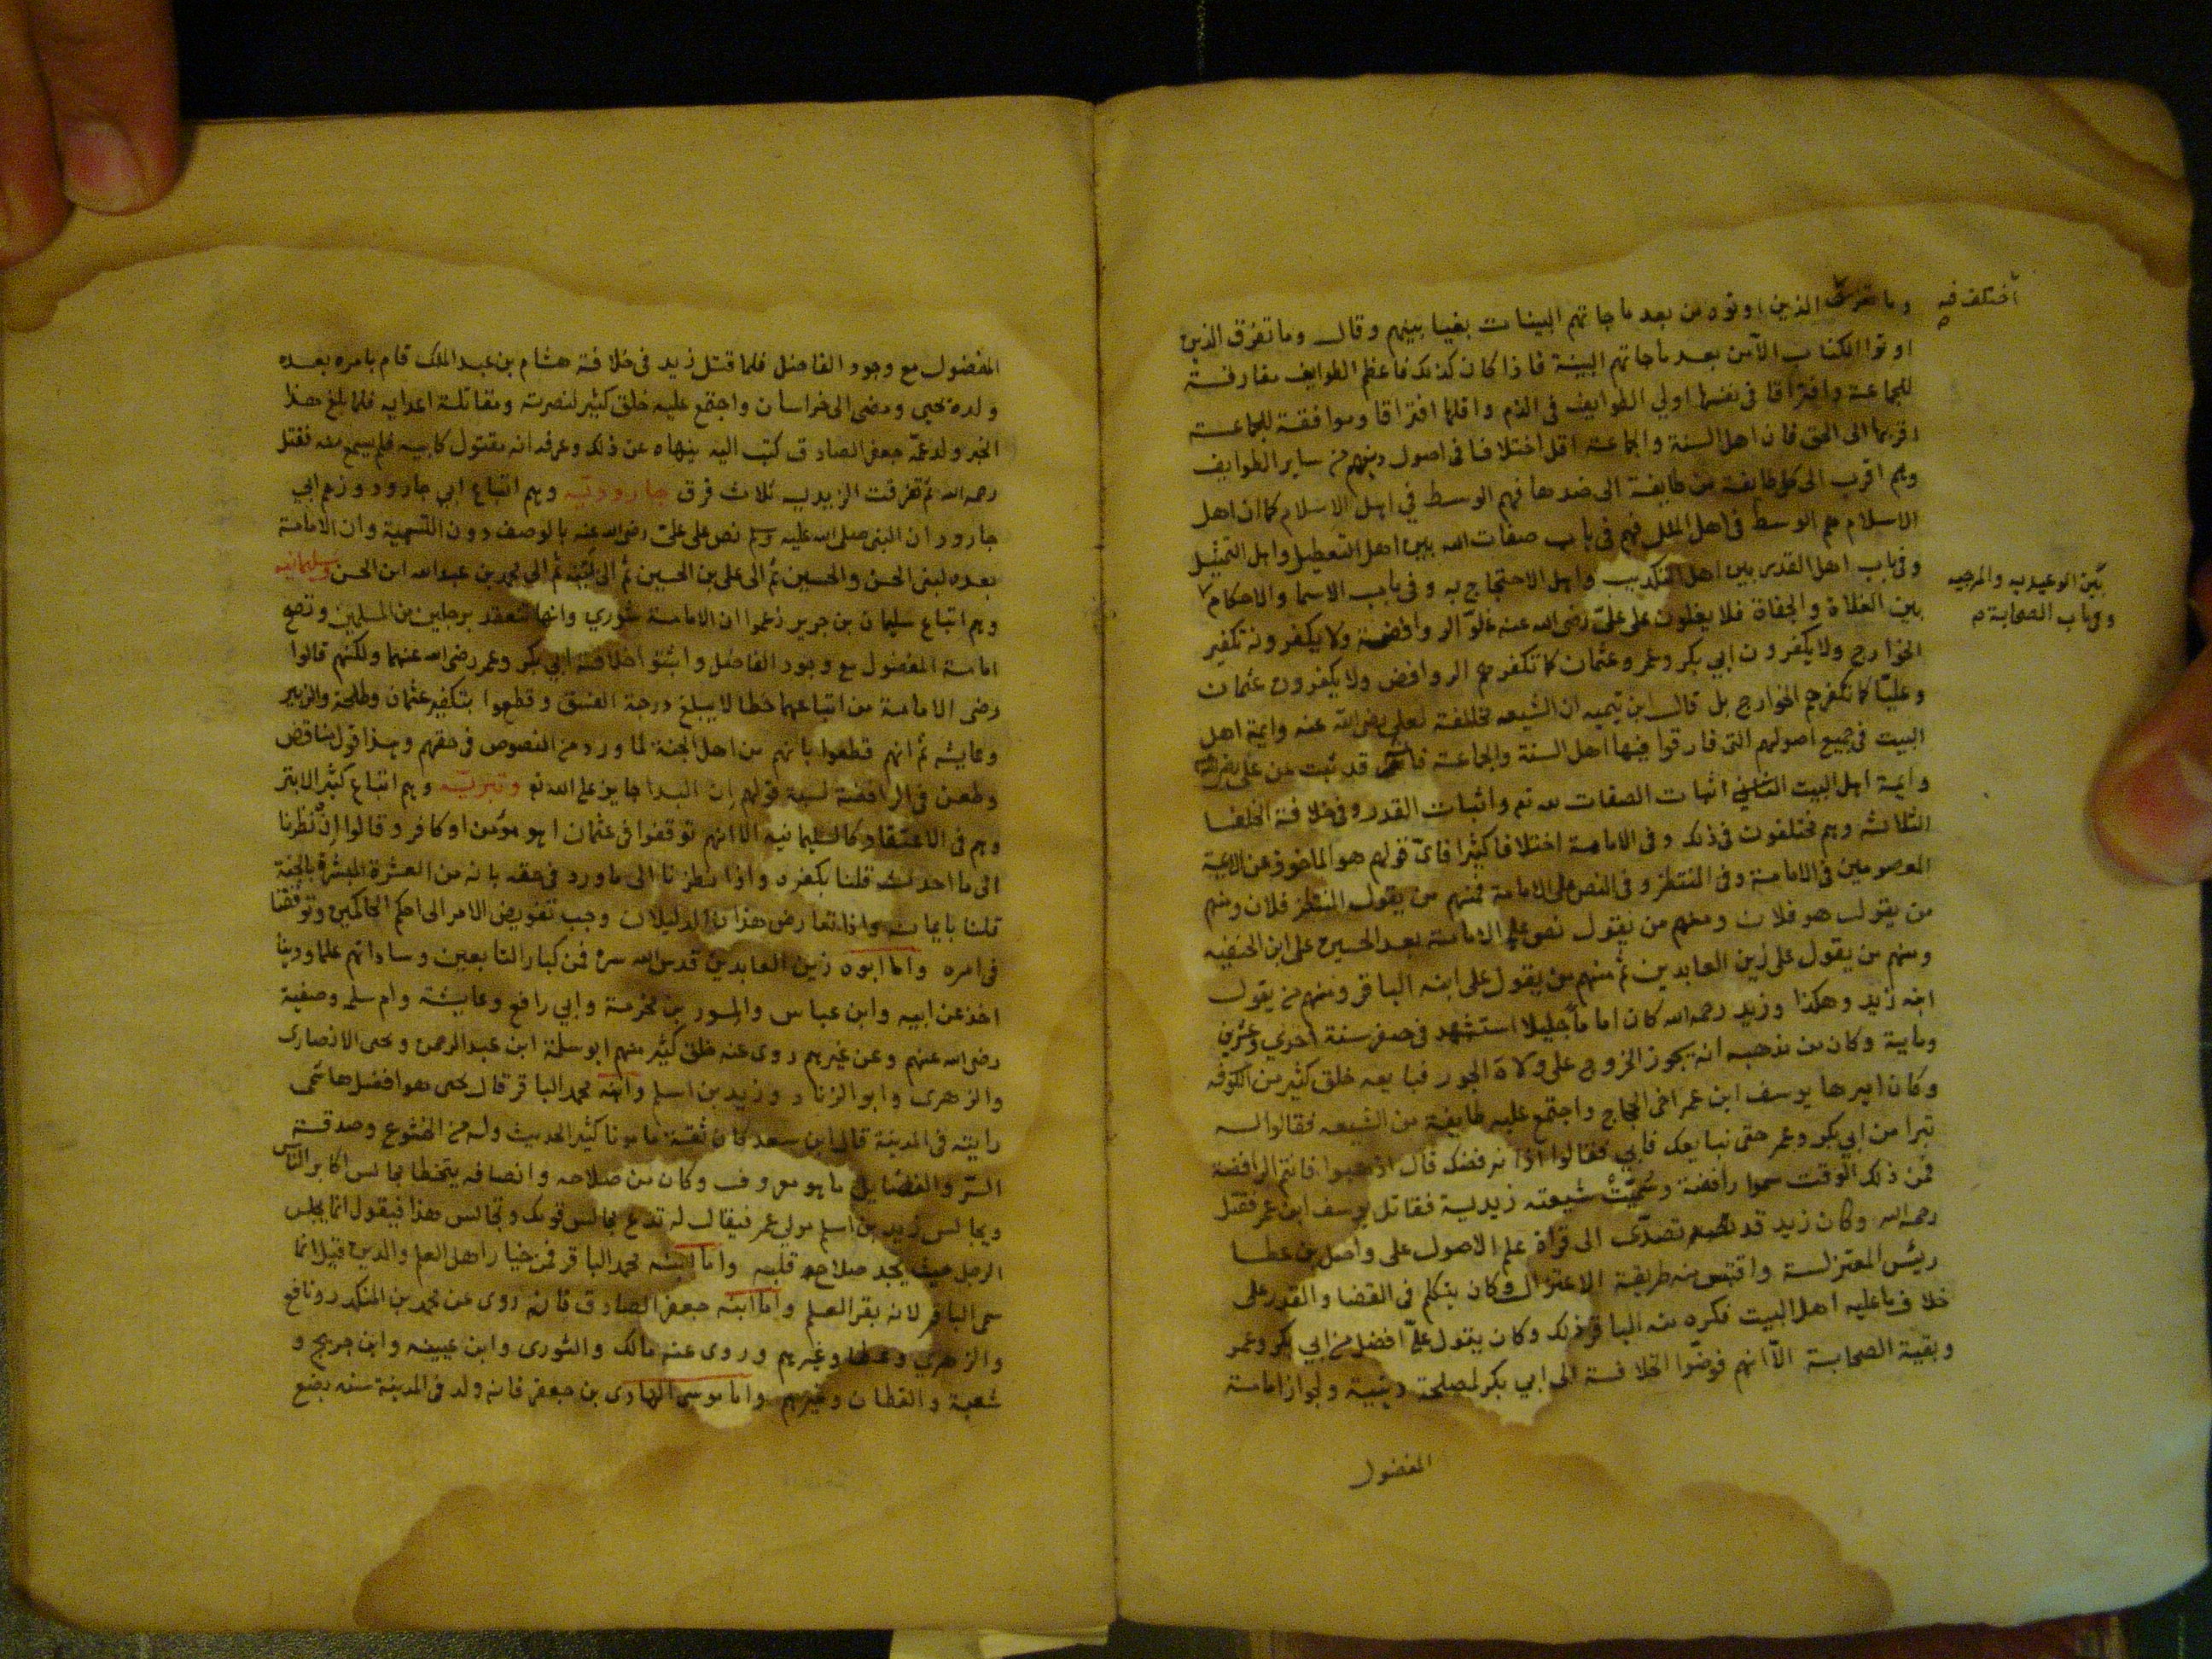 اختلف فيه
وما تفرق الذين اوتوه من بعد ما جاتهم البينات بغيا بينهم وقال وما تفرق الذين
اوتوا الكتاب الا من بعد ما جاتهم البينة فاذا كان كذلك فاعظم الطوايف مفارقة
للجماعة وافتراقا في نفسها اولي الطوايف في الذم واقلها افتراقا وموافقة للجماعة
اقربها الى الحق فان اهل السنة والجماعة اقل اختلافا في اصول دينهم من ساير الطوايف
وهم اقرب الى كل طايفة من طايفة الى ضدها فهم الوسط في اهل الاسلام كما ان اهل
الاسلام هم الوسط في اهل الملل فهم في باب صفات الله بين اهل التعطيل واهل التمثيل
وفي باب اهل القدر بين اهل التكذيب واهل الاحتجاج به وفي باب الاسما والاحكام
بين الوعيديه والمرجيه
وفي باب الصحابة
بين الغلاة والجفاة فلا يغلون على عليّ رضي الله عنه غلوّ الروافضة ولا يكفرونه تكفير
الخوارج ولا يكفرون ابي بكر وعمر وعثمان كما تكفرهم الروافض ولا يكفرون عثمان
وعليّا كما تكفرهم الخوارج بل قال ابن تيميه ان الشيعه مخالفة لعلي رضي الله عنه وايمة اهل
البيت في جميع اصولهم التي فارقوا فيها اهل السنة والجماعة قد ثبت عن علي
وايمة اهل البيت اثبات الصفات لله تع واثبات القدر وفي خلافة الخلفا
الثلاثه وهم مختلفون في ذلك وفي الامامة اختلافا كثيرا فايّ قولهم هو الماخوذ عن الايمة
المعصومين في الامامة وفي المنتظر وفي النص على الامامة فمنهم من يقول المنتظر فلان ومنهم
من يقول هو فلان ومنهم من يقول نص على الامامة بعد الحسين على ابن الحنفيه
ومنهم من يقول على زين العابدين ثم منهم من يقول على ابنه الباقر ومنهم من يقول
ابنه زيد وهكذا وزيد رحمه الله كان اماما جليلا استشهد في صفر سنة احدي وعشرين
وماية وكان من مذهبه انه يجوز الخروج على ولاة الجور فبايعه خلق كثير من الكوفه
وكان اميرها يوسف ابن عمر اخي الحجاج واجتمع عليه طايفة من الشيعه فقالوا له
تبرا من ابي بكر وعمر حتى نبايعك فابي فقالوا اذا نرفضك قال اذهبوا فانتم الرافضة
فمن ذلك الوقت سموا رافضة وسُمِّيَتْ شيعته زيدية فقاتل يوسف ابن عمر فقتل
رحمه الله وكان زيد قد تصدّى الى قراة علم الاصول على واصل بن عطا
ريئس المعتزلة واقتبس منه طريقة الاعتزال وكان يتكلم في القضا والقدر على
خلاف ما عليه اهل البيت فكره منه الباقر ذلك وكان يقول عليّ افضل من ابي بكر وعمر
وبقية الصحابة الّا انهم فوضّوا الخلافة الى ابي بكر لمصلحة دينية ولجواز امامة
المفضول
المفضول مع وجود الفاضل فلما قتل زيد في خلافة هشام بن عبد الملك قام بامره بعده
ولده يحيي ومضى الى خراسان واجتمع عليه خلق كثير لنصرته ومقاتلة اعدايه فلما بلغ هذا
الخبر ولد عمّه جعفر الصادق كتب اليه ينهاه عن ذلك وعرفه انه مقتول كابيه فلم يسمع منه فقتل
رحمه الله ثم تفرقت الزيديه ثلاث فرق جاروديّه وهم اتباع ابي جارود وزعم ابي
جارود ان النبي صلى الله عليه وسلم نص على عليّ رضي الله عنه بالوصف دون التسمية وان الامامة
بعده لبني الحسن والحسين ثم الى على بن الحسين ثم الى ثم الى محمد بن عبد الله ابن الحسن وسليمانيه
وهم اتباع سليمان بن جرير زعموا ان الامامة شوري وانها تنعقد برجلين من المسلمين وتصح
امامة المفضول مع وجود الفاضل واثبتو اخلافة ابي بكر وعمر رضي الله عنهما ولكنهم قالوا
رضى الامامة من اتباعهما خطا لا يبلغ درجة الفسق وقطعوا بتكفير عثمان وطلحة والزبير
وعايشه ثم انهم قطعوا بانهم من اهل الجنة لما ورد من النصوص في حقهم وهذا قول يناقض
وطعن في الرافضة لسبة قولهم ان البدا جايز على الله تع وتبريّه وهم اتباع كثير الابتر
وهم في الاعتقاد كالسليمانيه الا انهم توقفوا في عثمان اهو مؤمن او كافر وقالوا اذ نظرنا
الى ما احدث قلنا بكفره واذا نظرنا الى ما ورد في حقه بانه من العشرة المبشرة بالجنة
قلنا بايمانه واذا تعارض هذان الدليلان وجب تفويض الامر الى احكم الحاكمين وتوقفنا
في امره واما ابوه زين العابدين قدس الله سره فمن كبار التابعين وساداتهم علما ودينا
اخذ عن ابيه وابن عباس والمسور بن مخرمة وابي رافع وعايشة وام سلمه وصفية
رضى الله عنهم وعن غيرهم روى عنه خلق كثير منهم ابو سلمة ابن عبد الرحمن ويحيى الانصارى
والزهرى وابو الزناد وزيد بن اسلم وابنه محمد الباقر قال يحيى هو افضل هاشمى
رايته في المدينة قال ابن سعد كان ثقة مامونا كثير الحديث وله من الخشوع وصدقة
السّر والفضايل ما هو معروف وكان من صلاحه وانصافه يتخطا مجالس اكابر الناس
ويجالس زيد بن اسلم مولي عمر فيقال له تدع مجالس قومك وتجالس هذا فيقول انما يجلس
الرجل حيث يجد صلاح قلبه واما ابنه محمد الباقر فمن خيار اهل العلم والدين قيل انما
سمى الباقر لانه بقر العلم واما ابنه جعفر الصادق فانه روى عن محمد بن المنكدر ونافع
والزهري وعطا وغيرهم وروى عنه مالك والثورى وابن عيينه وابن جريج و
شعبة والقطان وغيرهم واما موسى الهادى بن جعفر فانه ولد في المدينة سنه بضع